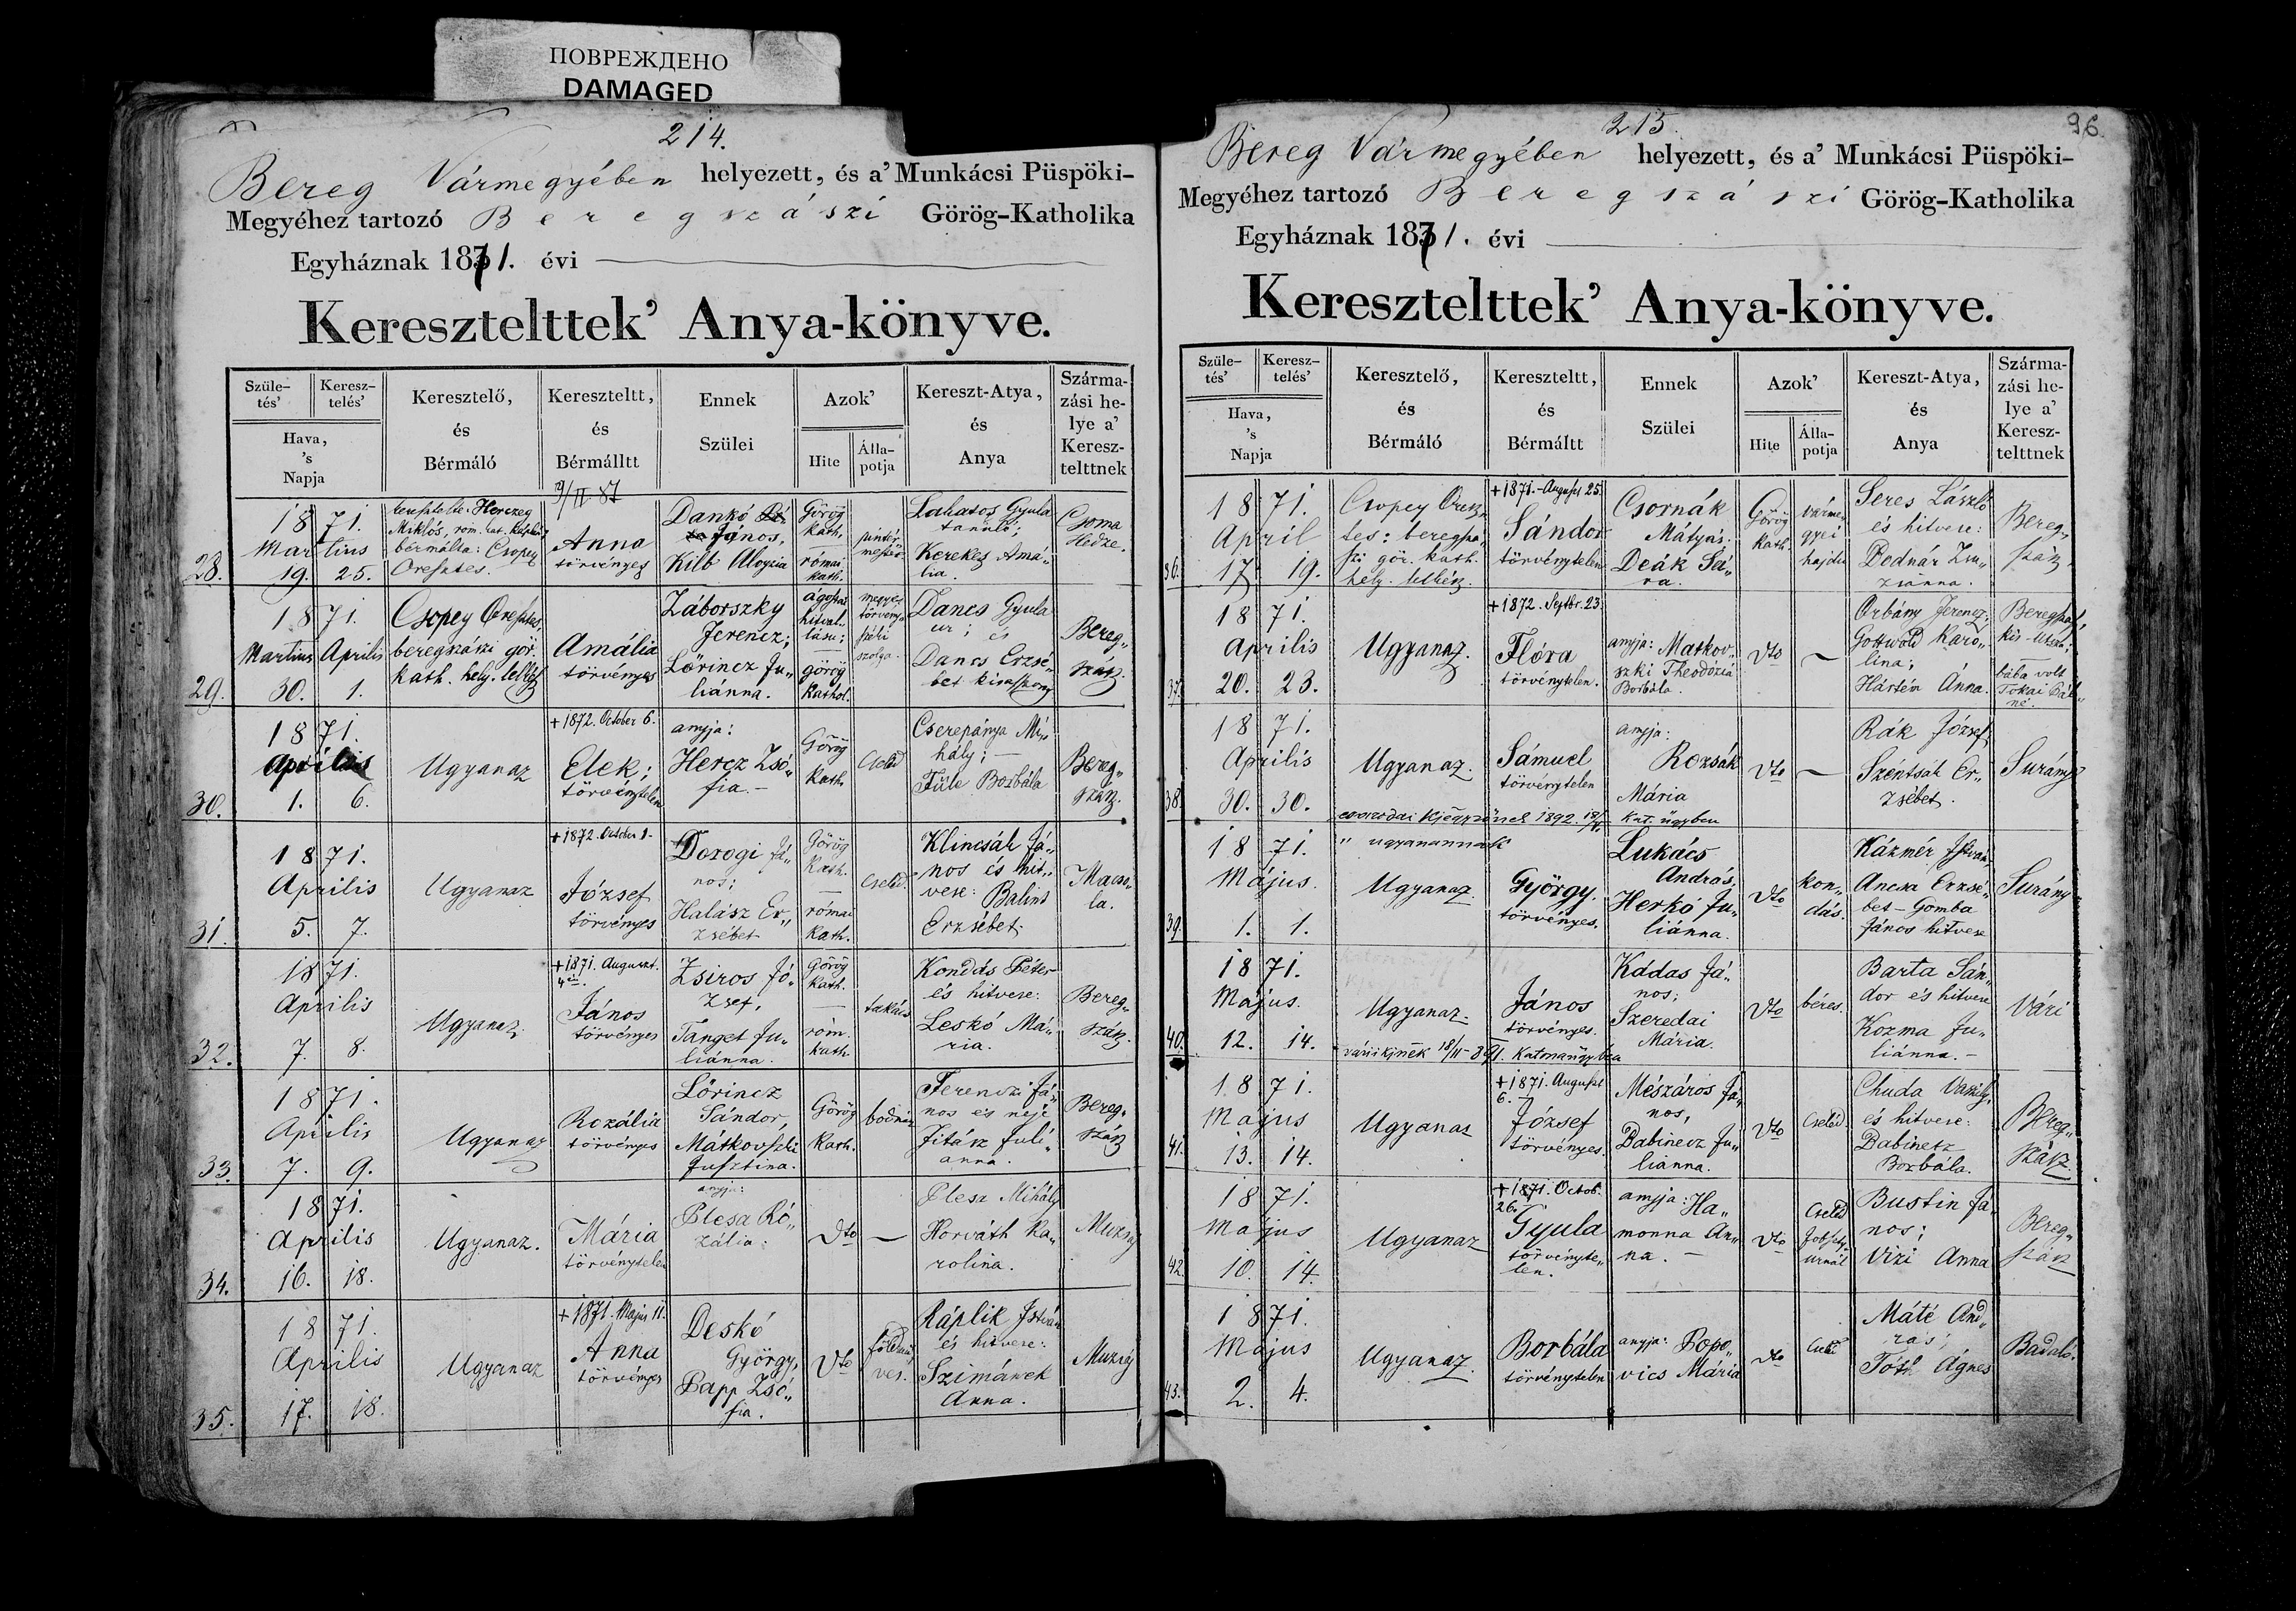 ПОВРЕЖДЕНО
DAMAGED
214.
Bereg Vármegyében helyezett, és a' Munkácsi Püspöki-
Megyéhez tartozó Beregszászi Görög-Katholika
Egyháznak 1871. évi
Keresztelttek' Anya-könyve.
Szüle- tés' Keresz- telés' Hava, 's Napja
Keresztelő, és Bérmáló
Kereszteltt, és Bérmálltt
Ennek Szülei
Azok' Hite Álla- potja
Kereszt-Atya, és Anya
Szárma- zási he- lye a' Keresz- telttnek
28.
1871.
Martius
19. 25.
Herczeg
Miklós, rom. kat.
bérmálta: Csopey
Oresztes.
9/II 87
Anna
törvényes
Dankó
János,
Kilb Aloyzia
Görög
kath.
római
kath.
pintér
mester
Lahatos Gyula
tanuló;
Kerekes Amá„
lia.
Csoma
29.
1871.
Martius Aprilis
30. 1.
Csopey Oresztes
beregszászi gör.
kath. hely. lelkész
Amália
törvényes
Záborszky
Ferencz;
Lőrincz Ju„
liánna.
görög
kathol.
megyei
törvény„
széki
szolga.
Dancs Gyula
ur; és
Dancs Erzsé„
bet kisasszony
Bereg„
szász.
30.
1871.
Aprilis
1. 6.
Ugyanaz
+1872. October 6.
Elek;
törvénytelen
anyja:
Hercz Zsó„
fia.-
Görög
kath.
Cseléd
Cserepánya Mi„
hály;-
Füle Borbála
Bereg„
szász.
31.
1871.
Aprilis
5. 7.
Ugyanaz
+1872. October 1.
József
törvényes
Dorogi Já„
nos;
Halász Er„
zsébet
Görög
kath.
római
kath.
Cseléd.
Klincsák Já„
nos és hit„
vese: Balint
Erzsébet.
Macso„
la.
32.
1871.
Aprilis
7. 8.
Ugyanaz.
+1871. August.
János
törvényes
Zsiros Jó„
zsef,
Tanget Ju„
liánna.
Görög
kath.
róm.
kath.
takács
Kondás Péter
és hitvese:
Leskó Má„
ria.
Bereg„
szász.
33.
1871.
Aprilis
7. 9.
Ugyanaz
Rozália
törvényes
Lőrincz
Sándor,
Mátkovszki
Jusztina.
Görög
kath.
bodnár
Ferenczi Já„
nos és neje
Juli„
anna.
Bereg„
szász
34.
1871.
Aprilis
16. 18.
Ugyanaz.
Mária
törvénytelen
anyja:
Plesa Ró„
zália.
dto —
Plesa Mihály
Horváth Ka„
rolina.
Muzsaj
35.
1871.
Aprilis
17. 18.
Ugyanaz
+1871. Majus 11.
Anna
törvényes
Deskó
György,
Papp Zsó„
fia.
dto
földmű„
ves.
Káplik István
és hitvese:
Szimánek
Anna.
Muzsaj
215.
96.
Bereg Vármegyében helyezett, és a' Munkácsi Püspöki-
Megyéhez tartozó Beregszászi Görög-Katholika
Egyháznak 1871. évi
Keresztelttek' Anya-könyve.
Szüle- tés' Keresz- telés' Hava, 's Napja
Keresztelő, és Bérmáló
Kereszteltt, és Bérmáltt
Ennek Szülei
Azok' Hite Álla- potja
Kereszt-Atya, és Anya
Szárma- zási he- lye a' Keresz- telttnek
36.
1871.
April
17 19.
Csopey Oresz„
tes: beregszá„
szi gör. kath.
hely. lelkész.
+1871.-August 25.
Sándor
törvénytelen
Csornák
Mátyás.
Deák Sá„
ra.
Görög
kath.
várme„
gyei
hajdu
Seres László
és hitvese:
Bodnár Zsu„
zsánna.
Bereg„
szász
37.
1871.
Aprilis
20. 23.
Ugyanaz.
+1872. Septbr. 23.
Flóra
törvénytelen.
anyja: Matkov„
szki Theodózia
Borbála.
dto —
Orbány Ferencz;
Gottwald Karo„
lina;
Hártén Ánna.
Beregszász,
kis-utcza;
bába volt
Tokai Pál„
né.
38.
1871.
Aprilis
30. 30.
Ugyanaz.
Sámuel
törvénytelen
anyja:
Rozsák
Mária
dto —
Rák József,
Szentsák Er„
zsébet.
Surány
1892.
Kat. ügyben
39.
1871.
Május.
1. 1.
" ugyanannak
Ugyanaz.
György.
törvényes.
Lukács
András,
Herkó Ju„
liánna.
dto
kon„
dás.
Kázmér István,
Ancsa Erzsé„
bet-Gomba
János hitvese
Surány
40.
1871.
Május.
12. 14.
Ugyanaz.
János
törvényes.
Kádas Já„
nos;
Szeredai
Mária.
dto
béres.
Barta Sán„
dor és hitvese
Kozma Ju„
liánna.-
Vári
41.
1871.
Május
13. 14.
Ugyanaz
+1871. August
6.
József
törvényes.
Mészáros Já„
nos,
Babinecz Ju„
liánna.
dto
Cseléd.
Chuda Vaszily,
és hitvese:
Babinetz
Borbála.
Bereg„
szász
42.
1871.
Május
10. 14.
Ugyanaz
+1871. Octob.
26.
Gyula
törvényte„
len.
anyja: Ha„
monna An„
na. —
dto
Cseléd
urnál
Bustin Já„
nos;
Vizi Anna
Bereg„
szász
43.
1871.
Május
2. 4.
Ugyanaz.
Borbála
törvénytelen
anyja: Popo„
vics Mária
dto
Cseléd
Máté And„
rás;
Tóth Ágnes
Badaló.